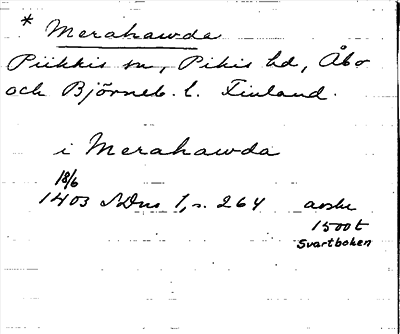 * Merahawda
Piikkis sn, Pikis hd, Åbo
och Björneb. l. Finland.
i Merahawda
18/6
1403 SDns 1, s. 264 avskr
1500t
Svartboken